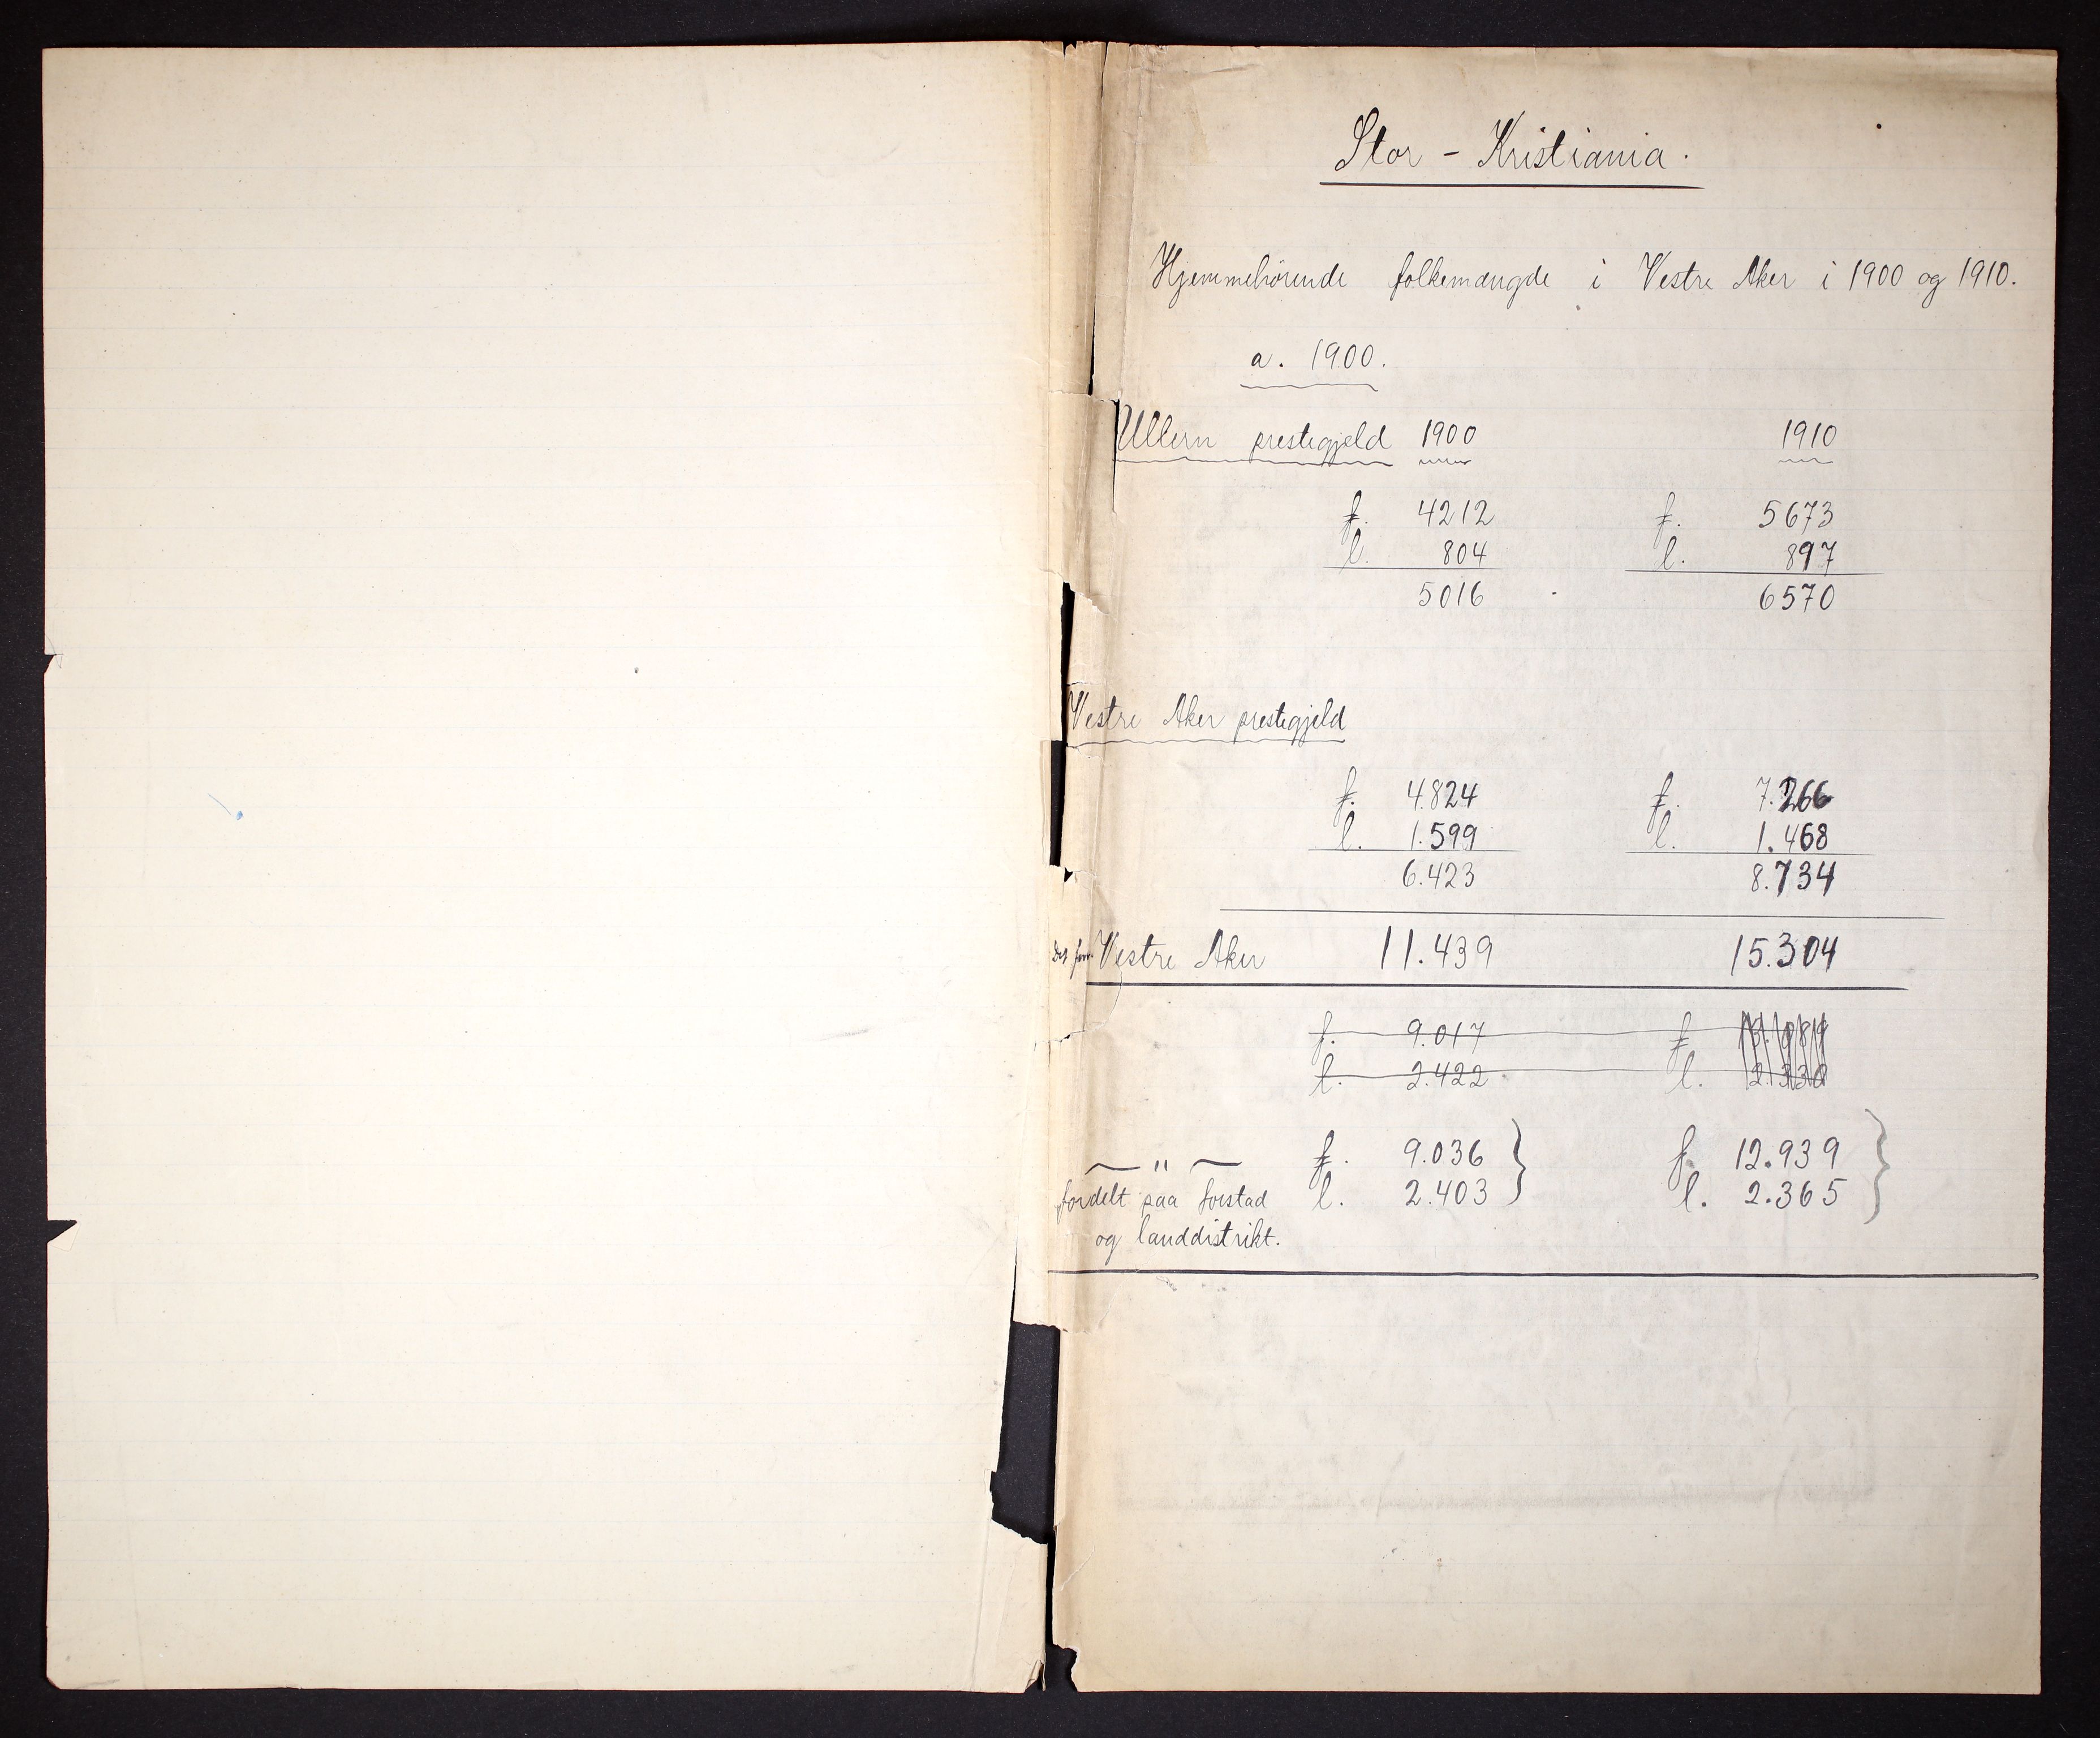 Stor - Kristiania.
Hjemmehörende folkemængde i Vestre Aker i 1900 og 1910.
a. 1900.
Ullern prestegjeld 1900 1910
f. 4212 f. 5673
l. 804 l. 897
5016 6570
Vestre Aker prestegjeld
f. 4.824 f. 7.266
l. 1.599 l. 1.468
6.423 8.734
Vestre Aker 11.439 15.304
f. 9.017 f.
l. 2.422 l.
— " — f. 9.036 } f. 12.939 }
fordelt paa forstad l. 2.403 l. 2.365
og landdistrikt.